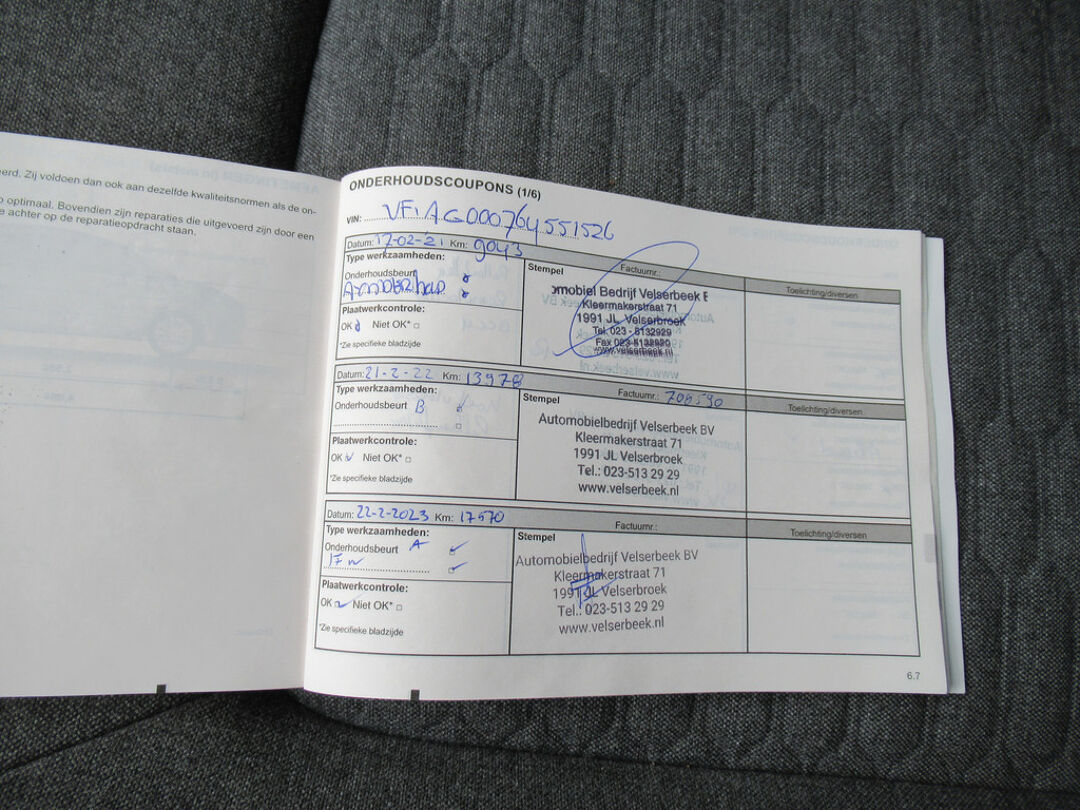 eerd. Zij voldoen dan ook aan dezelfde kwaliteitsnormen als de on-
o optimaal. Bovendien zijn reparaties die uitgevoerd zijn door een
e achter op de reparatieopdracht staan.
ONDERHOUDSCOUPONS (1/6)
VIN: VF1AG000764551526
Datum: 17-02-21 Km: 9043
Factuurnr.:
Toelichting/diversen
Type werkzaamheden:
Onderhoudsbeurt
Plaatwerkcontrole:
OK Niet OK*
*Zie specifieke bladzijde
Stempel
omobiel Bedrijf Velserbeek B
Kleermakerstraat 71
1991 JL Velserbroek
Tel. 023 - 5132929
Fax 023-5132920
www.velserbeek.nl
Datum: 21-2-22 Km: 13978
Factuurnr.: 706590
Toelichting/diversen
Type werkzaamheden:
Onderhoudsbeurt B
Plaatwerkcontrole:
OK Niet OK*
*Zie specifieke bladzijde
Stempel
Automobielbedrijf Velserbeek BV
Kleermakerstraat 71
1991 JL Velserbroek
Tel.: 023-513 29 29
www.velserbeek.nl
Datum: 22-2-2023 Km: 17570
Factuurnr.:
Toelichting/diversen
Type werkzaamheden:
Onderhoudsbeurt A
Plaatwerkcontrole:
OK Niet OK*
*Zie specifieke bladzijde
Stempel
Automobielbedrijf Velserbeek BV
Kleermakerstraat 71
1991 JL Velserbroek
Tel.: 023-513 29 29
www.velserbeek.nl
6.7